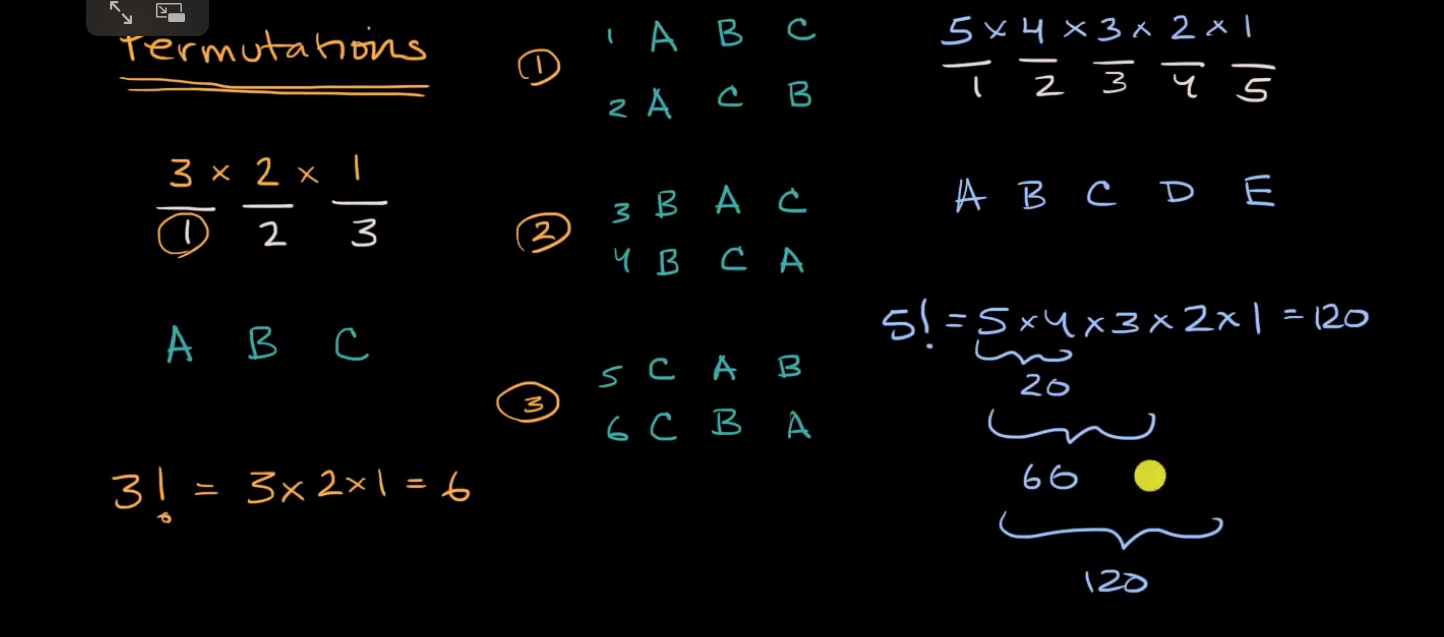 Permutations
3 × 2 × 1
1 2 3
A B C
3! = 3 × 2 × 1 = 6
1
1 A B C
2 A C B
2
3 B A C
4 B C A
3
5 C A B
6 C B A
5 × 4 × 3 × 2 × 1
1 2 3 4 5
A B C D E
5! = 5 × 4 × 3 × 2 × 1 = 120
20
60
120